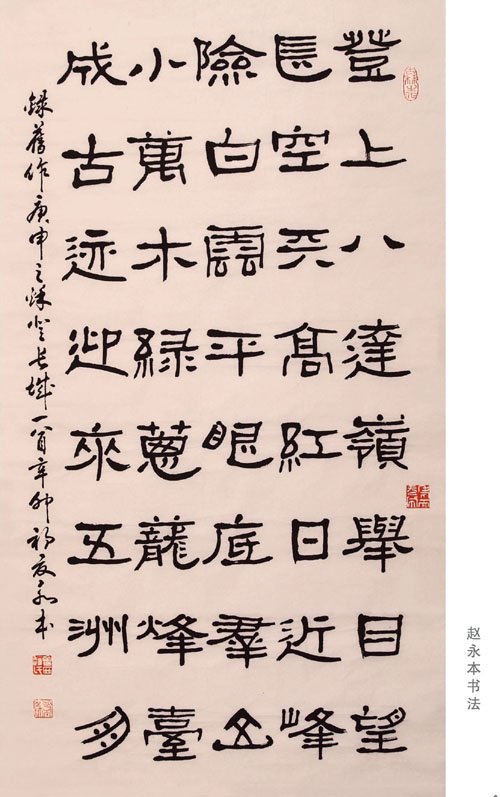 登上八達嶺舉目望
長空天高紅日近峰
險白雲平眼底羣山
小萬木綠蔥龍烽臺
成古迹迎來五洲朋
録舊作庚申之秋登長城一首辛卯初夏永本
赵永本书法